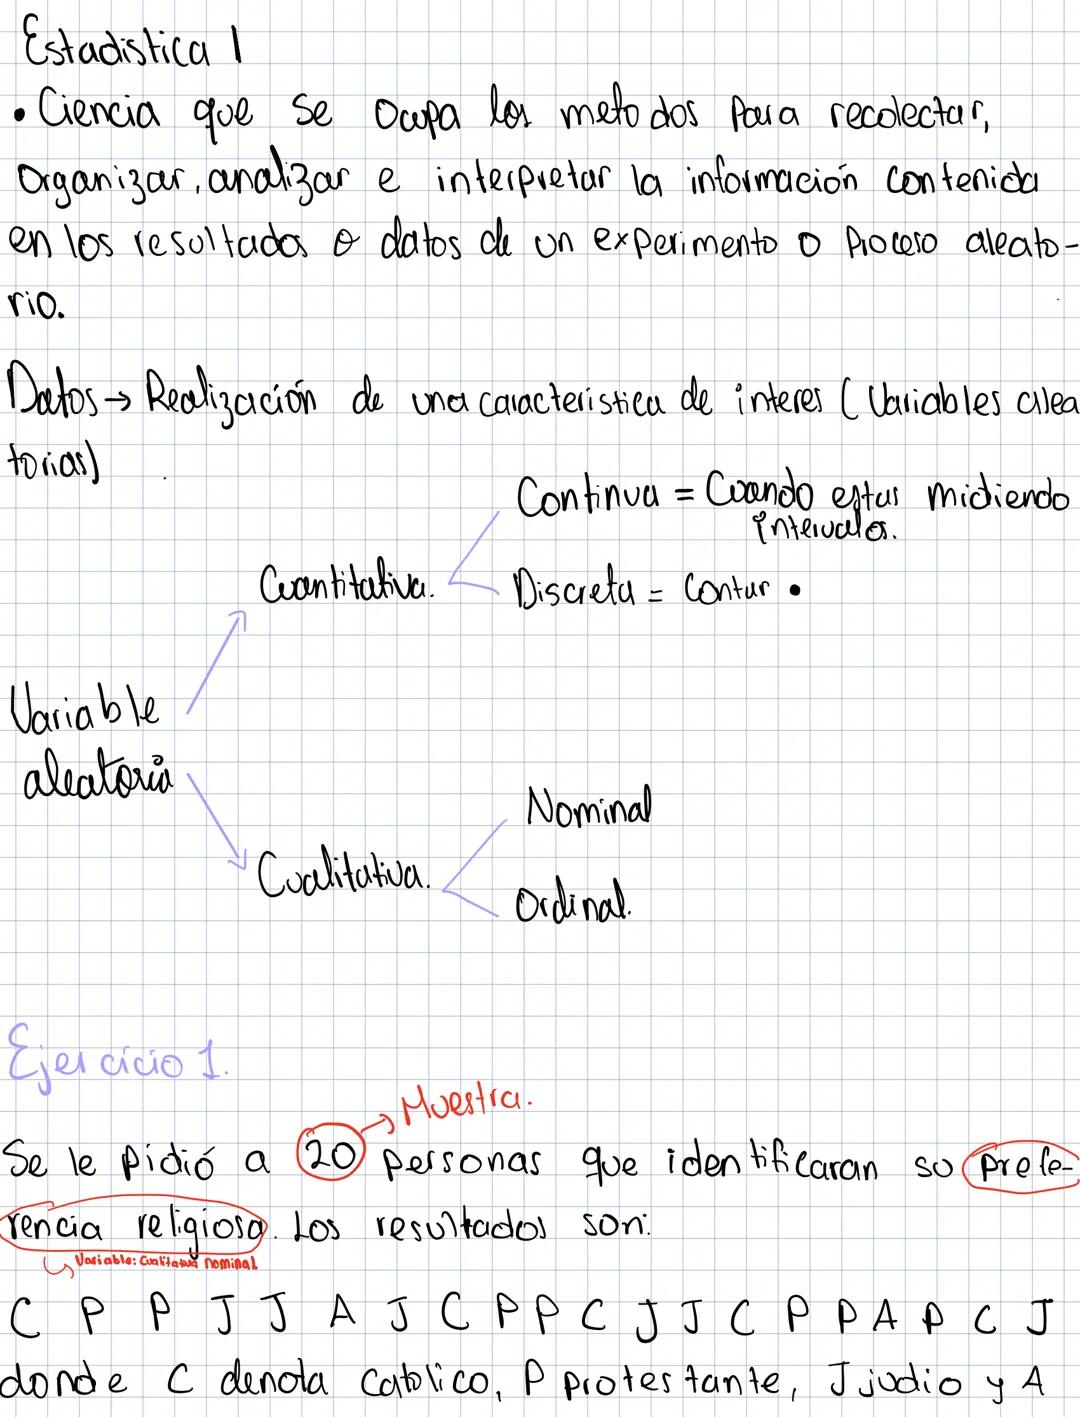 Estadistica 1
• Ciencia que se ocupa los metodos para recolectar,
Organizar, analizar e interpretar la información contenida
en los resultados o datos de un experimento o proceso aleato-
rio.
Datos → Realización de una caracteristica de interes (Variables alea
torias)
Continua = Cuando estas midiendo
intervalos.
Cuantitativa.
Discreta = Contar •
Variable
aleatoria
Nominal
Cualitativa.
Ordinal.
Ejercicio 1.
→ Muestra.
Se le pidió a 20 personas que identificaran su prefe-
rencia religiosa. Los resultados son:
↳ Variable: Cualitativa nominal
C P P J J A J C P P C J J C P P A P C J
donde C denota Catolico, P protestante, J judio y A